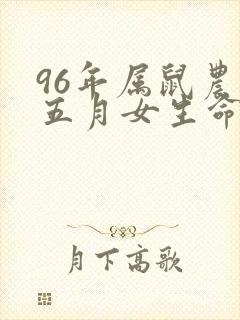 96年属鼠农
五月女生命
月下高歌